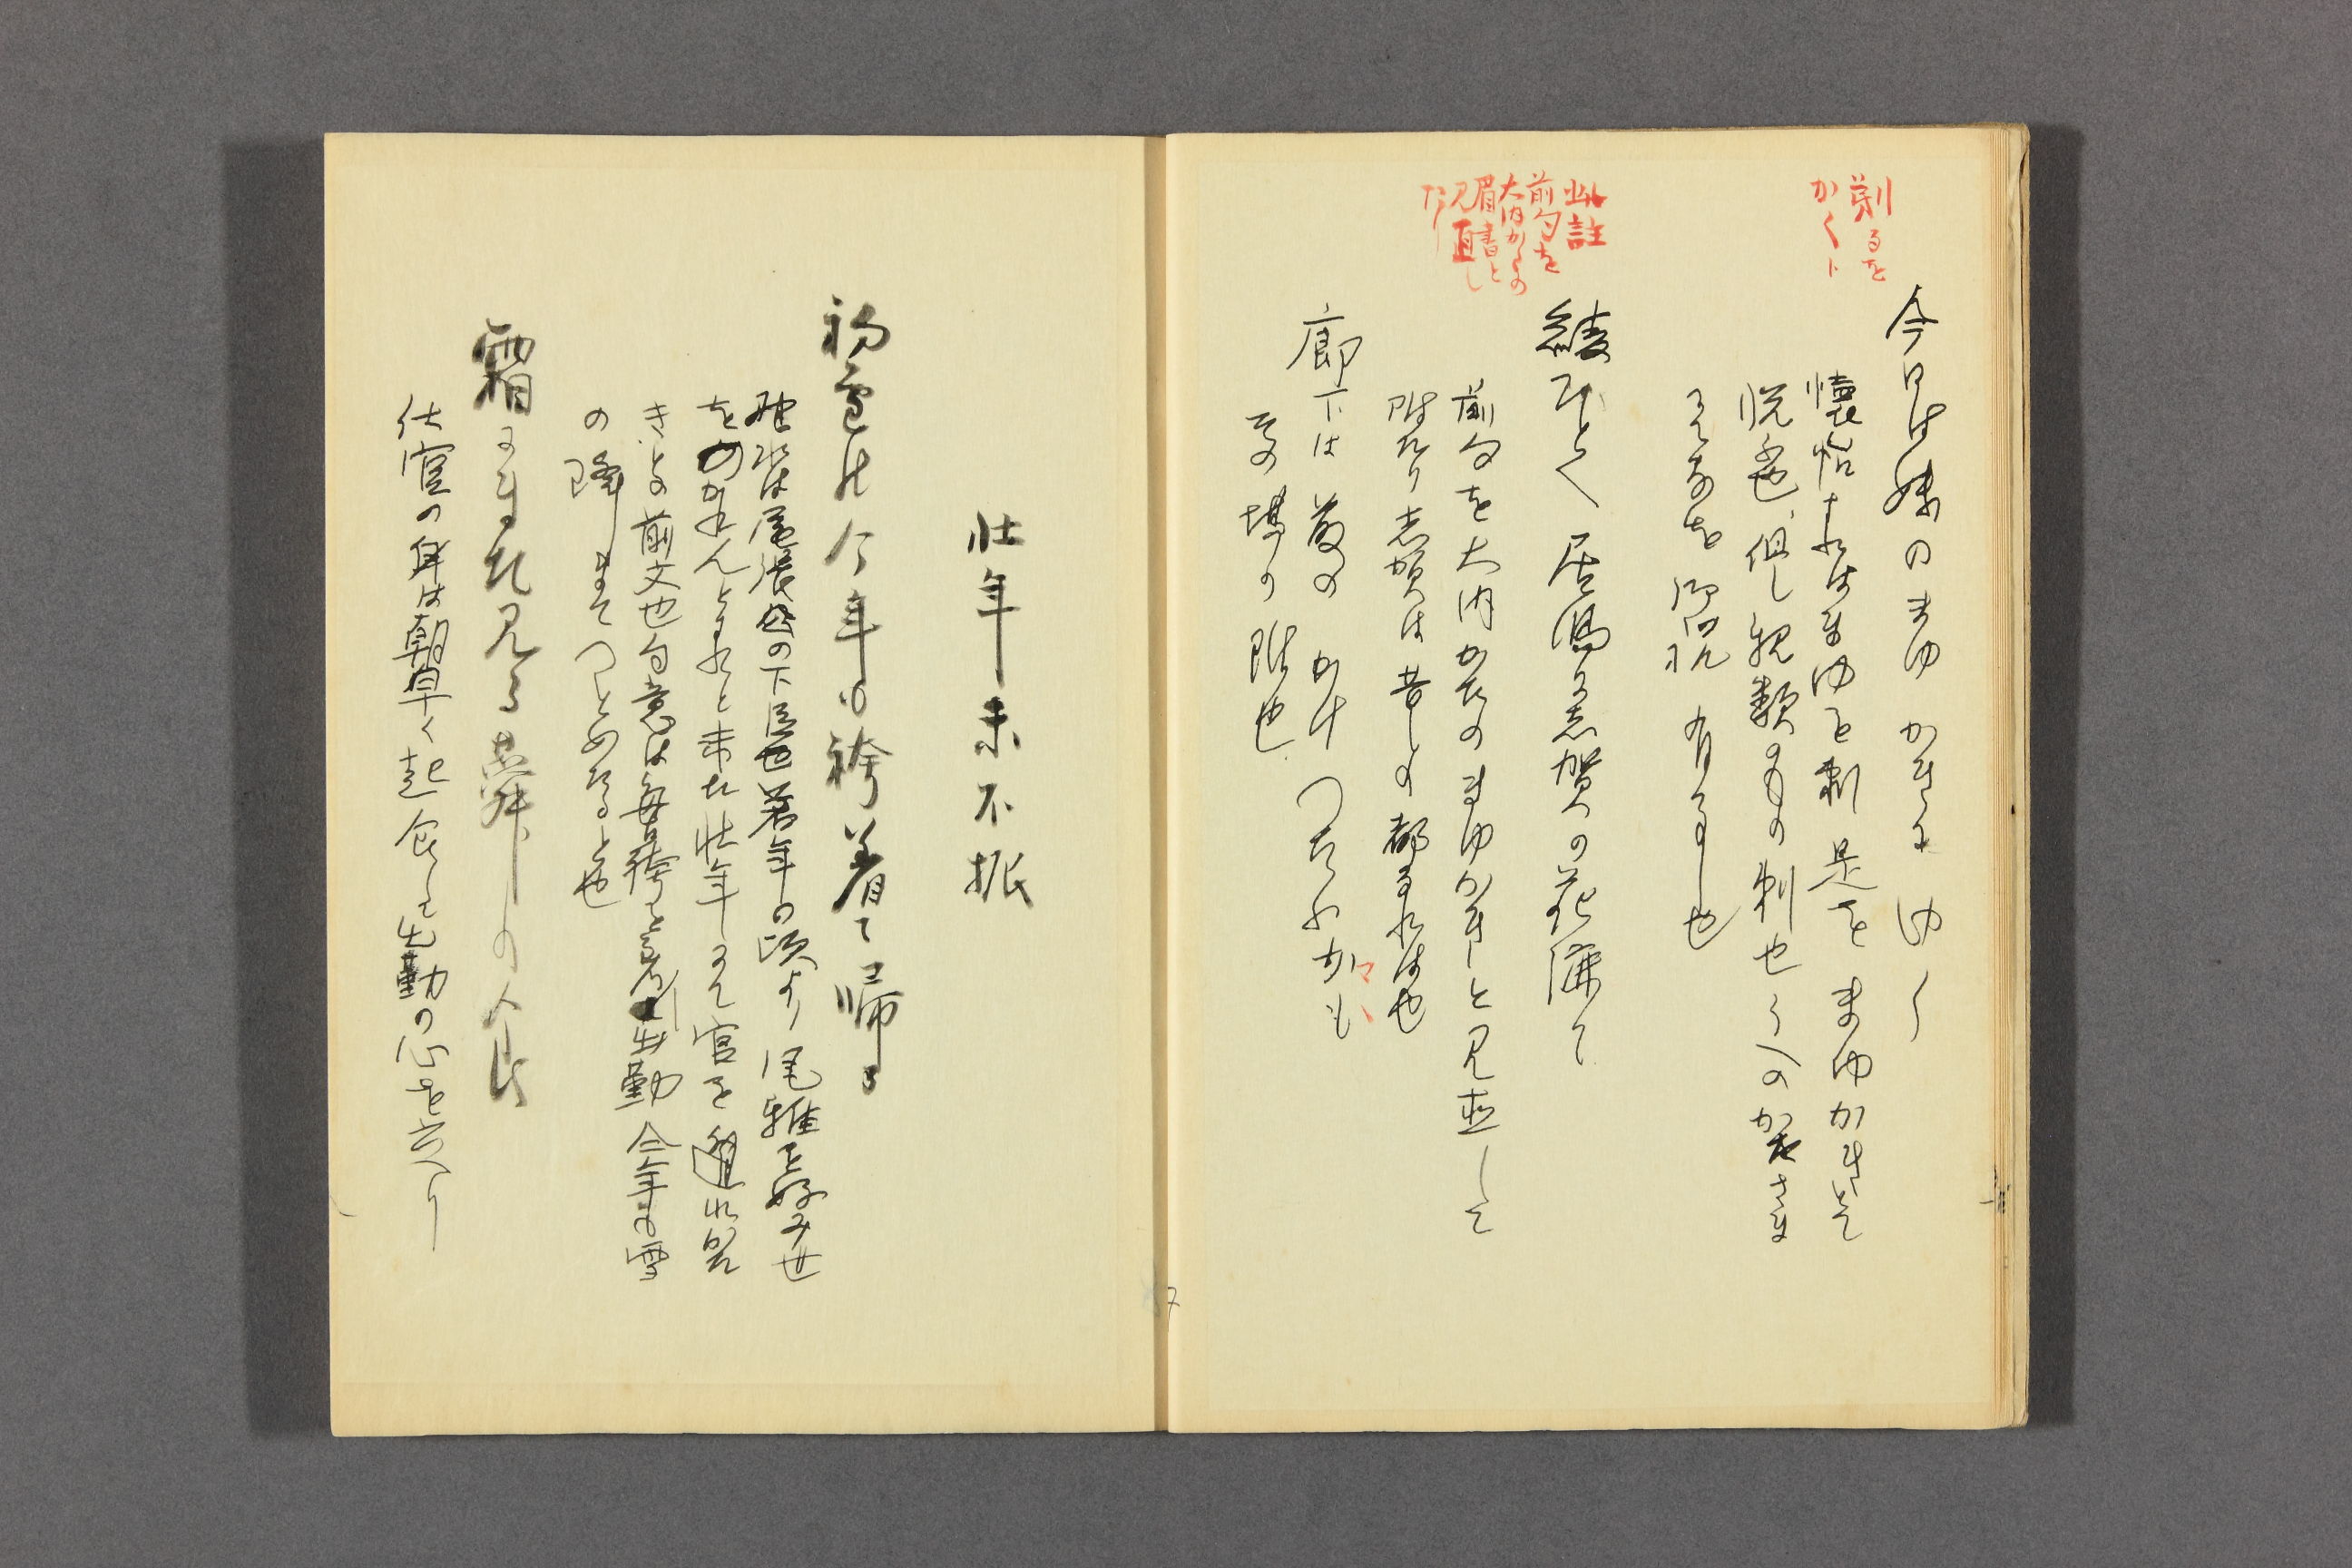 剃るを
かくト
今日は妹のまゆかきにゆく
懐胎すれはまゆを剃是をまゆかきとて
悦也但し親類のもの剃也
御祝有る事也
此註
前句を
大内かたの
眉書と
見直し
たり
綾ひとへ居湯に志賀の花漉て
前句を大内かたのまゆかきと見直して
附たり志賀は昔しの都なれは也
廊下は藤のかけつたふかも
其の場の附也
壮年未不振
初雪の今年も袴着て帰る
野水は尾張の下臣也若年の頃より風雅を好み世
をのかれんとすれと未た壮年にて官を遁れかた
きとの前文也句意は毎日袴を着し出勤今年も雪
の降まてつとめたると也
霜にまた見る蕣の食
仕官の身は朝早く起食して出勤の心を云へり